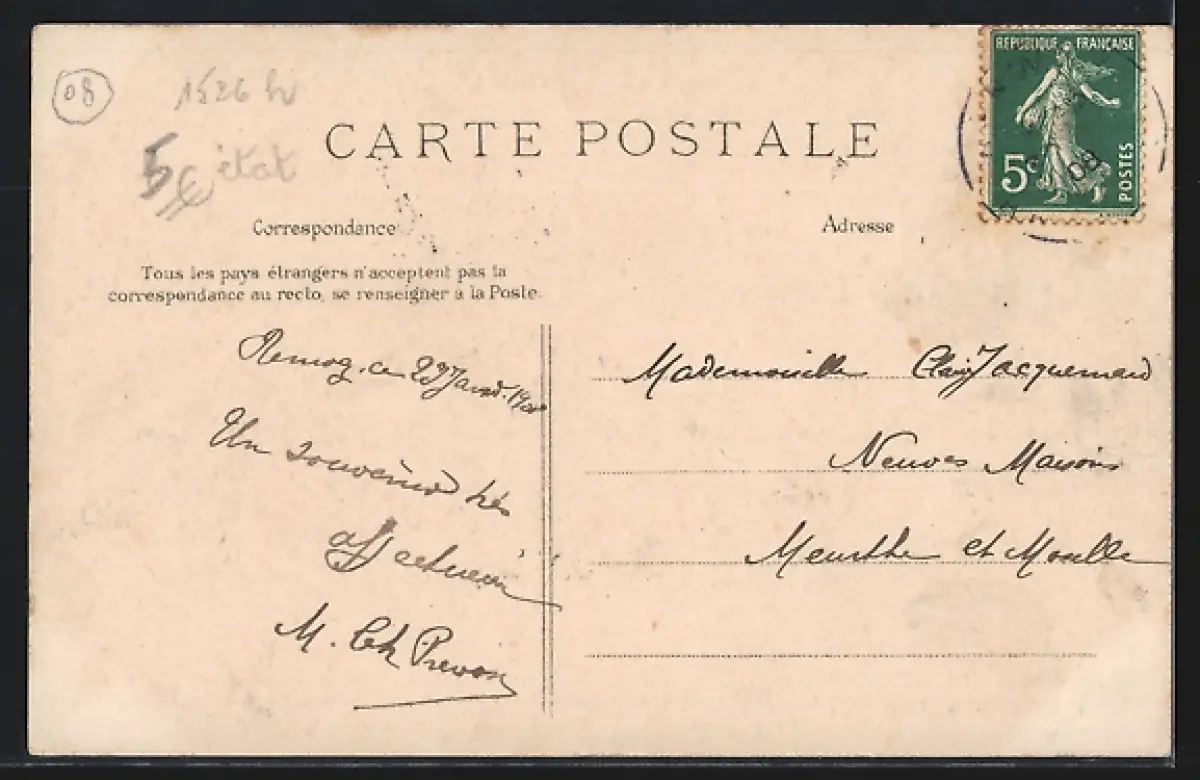 08
1526
5€ état
CARTE POSTALE
RÉPUBLIQUE FRANÇAISE
5c
POSTES
08
Correspondance
Adresse
Tous les pays étrangers n'acceptent pas la
correspondance au recto, se renseigner à la Poste.
ce 29 Janv. 1908
Un souvenir très
affectueux
M. Ch Prevon
Mademoiselle Jacquemard
Neuves Maisons
Meurthe et Moselle